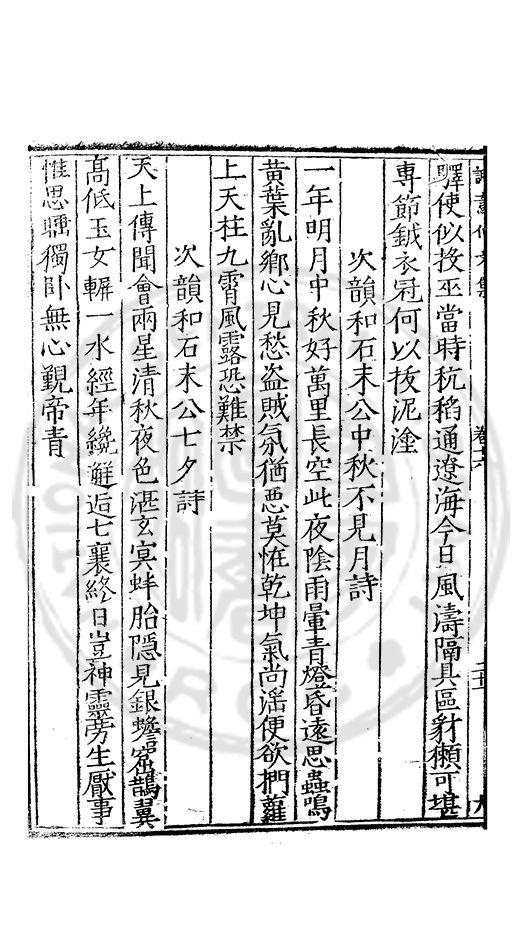 驛使似投巫當時秔稻通遼海今日風濤隔具區豺獺可堪
専節鉞衣冠何以拔泥塗
次韻和石末公中秋不見月詩
一年明月中秋好萬里長空此夜陰雨暈青燈昏遠思蟲鳴
黄葉亂鄉心見愁盗賊氛猶惡莫恠乾坤氣尚滛便欲捫蘿
上天柱九霄風露恐難禁
次韻和石末公七夕詩
天上傳聞會兩星清秋夜色湛玄冥蚌胎隠見銀蟾窟鵲翼
髙低玉女軿一水經年纔邂逅七襄終日豈神靈旁生厭事
惟思瞑獨卧無心覬帝青